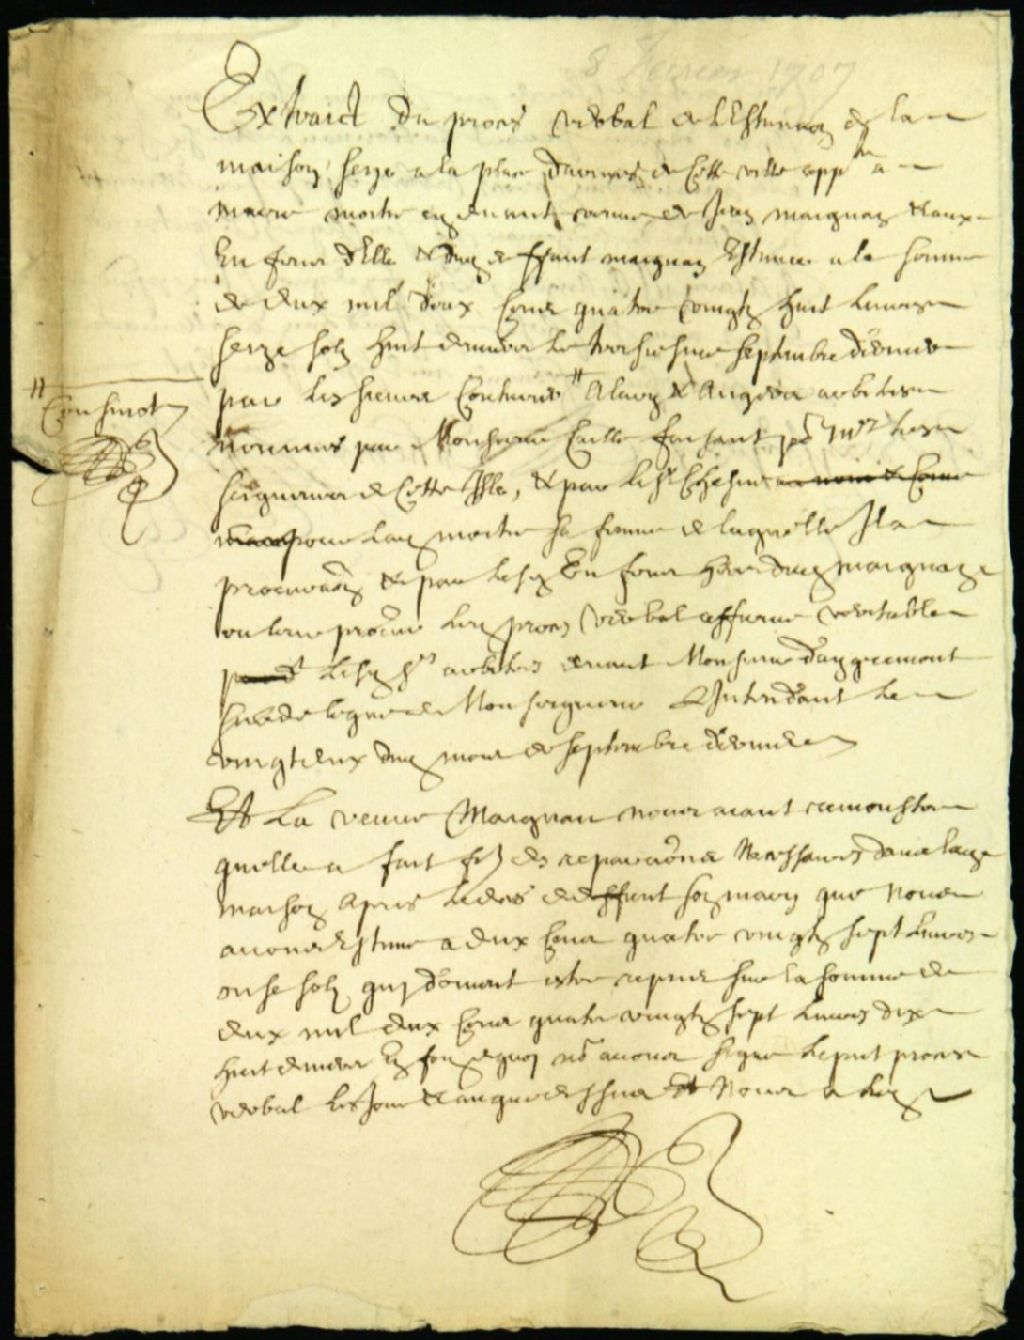 8 fevrier 1707
Extraict du proces verbal de l'Estimaon de la
maison seize a la place d'armes de Cette ville appnte a
marie moitie en devant veuve de Jean maignan & aux
Enfens d'Elle & dud deffunt maignan Estimee a la somme
de deux mil deux Cens quatre vingts huit livres
seize solz huit deniers le troisiesme septembre dernier
par les sieurs Couturier # Alary & Angers arbitres
#
Cousinot
nommes par Monsieur Caille faisant pr Mrs Les
seigneurs de Cette Isle, & par le Sr Chesne
pour Lad moitie sa femme de laquelle Il a
procuraon & par lesd Enfens dud maignan
ou leur
 Led proces verbal affirme veritable
par lesd Srs arbitres devant Monsieur d'aigremont
subdelegue de Monseigneur L'Intendant Le
vingtdeux dud mois de septembre dernier
Et La veuve Maignan nous aiant remonstre
quelle a fait des reparaons Necessaires dans lad
maison Apres le deces dud deffunt son mary que Nous
avons Estime a deux Cens quatre vingts sept livres
onse solz qui doivent estre repris sur la somme de
deux mil deux Cens quatre vingts sept livres dix
huit deniers En foy de quoy ns avons signe le pnt proces
verbal les Jour & an que dessus Et Nous a